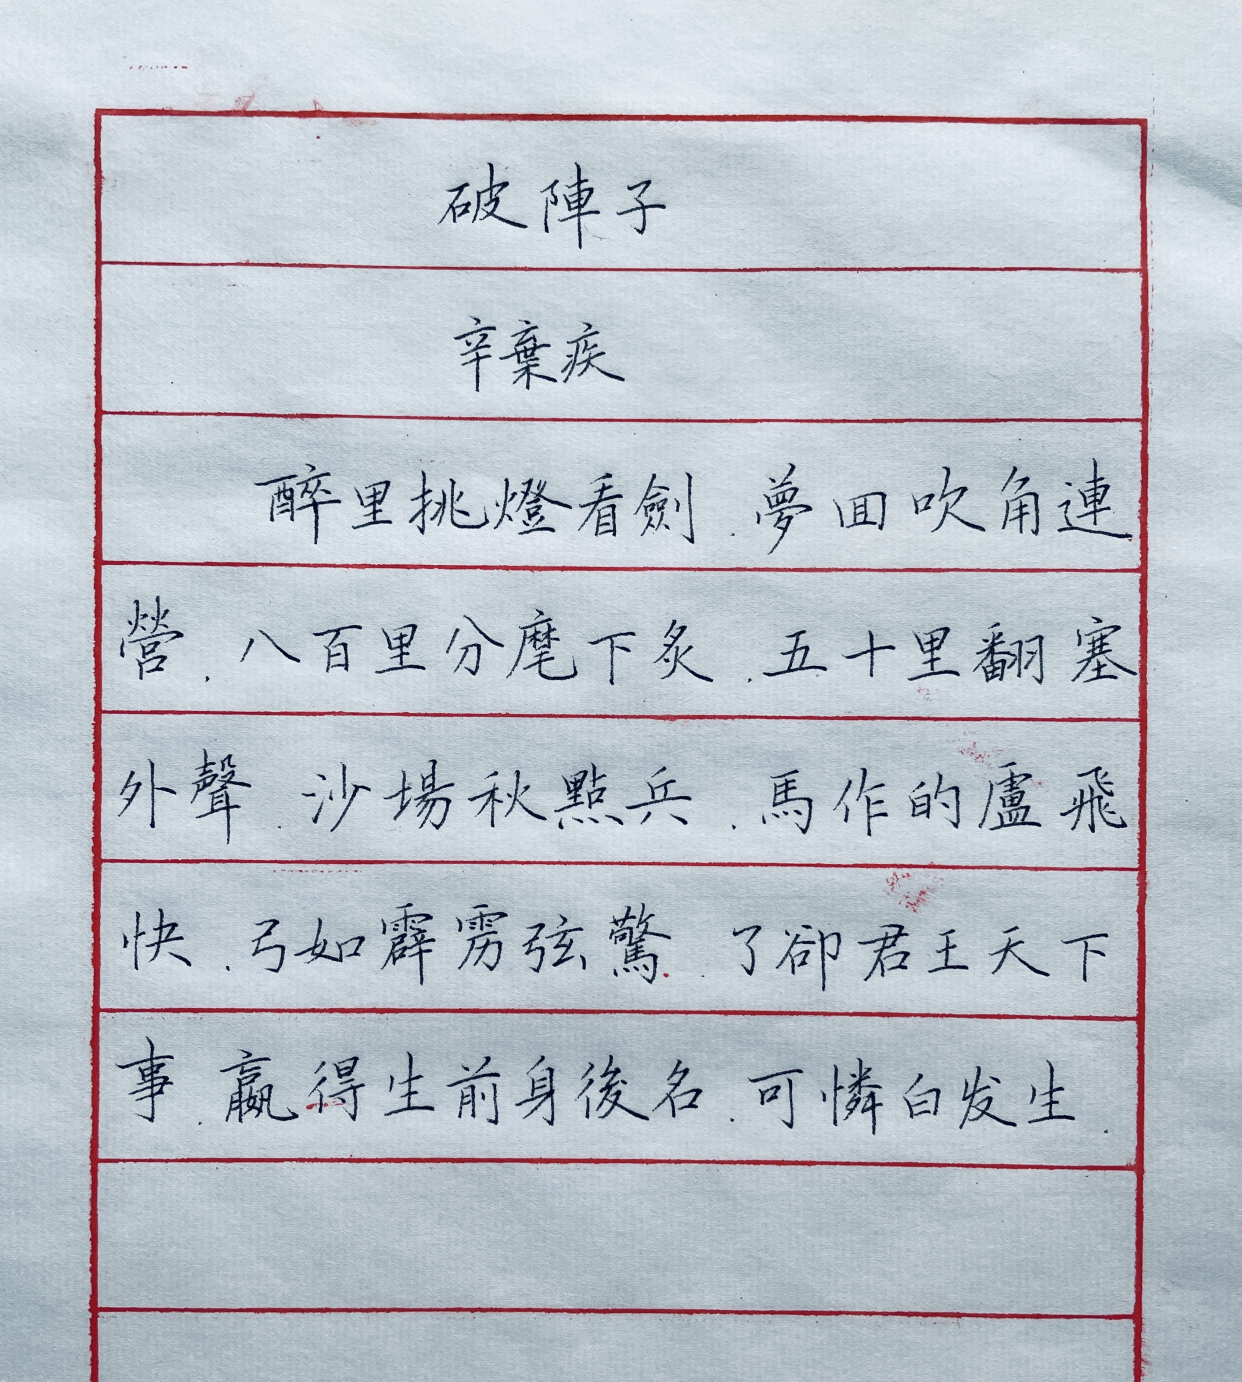 破陣子
辛棄疾
醉里挑燈看劍.夢回吹角連
營.八百里分麾下炙.五十里翻塞
外聲.沙場秋點兵.馬作的盧飛
快.弓如霹雳弦驚.了卻君王天下
事.贏得生前身後名.可憐白发生.